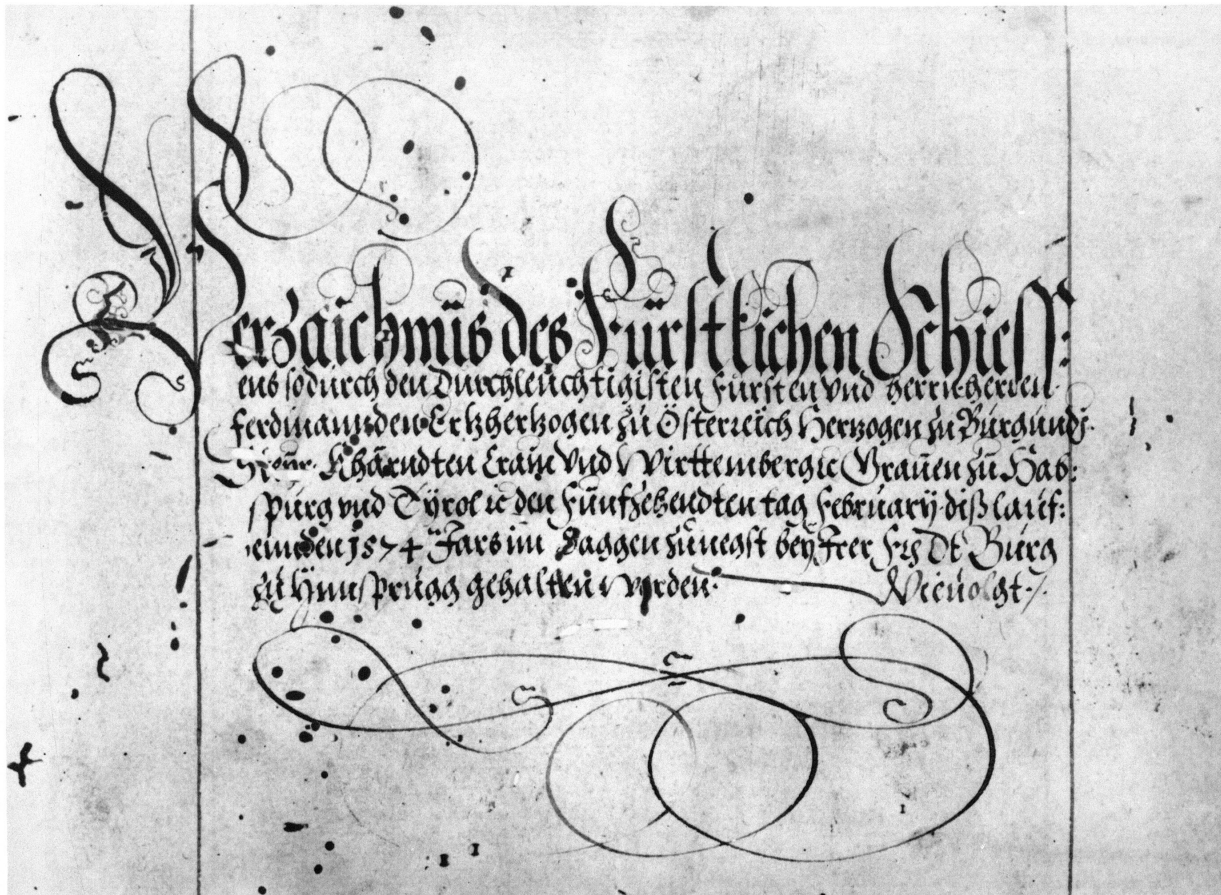 Verzaichnüs des Fürstlichen Schiess:
ens so durch den Durchleüchtigisten Fürsten vnd herrn herren
ferdinannden Ertzhertzogen zu Österreich Hertzogen zu Burgundj.
Steÿr. Khärndten Crain Vnd Wirttemberg ic Grauen zu Hab:
spurg vnd Tÿrol ic den Fünfzehendten tag Februarÿ diß lauf:
ennden 1574 Jars im zunegst beÿ Irer Burg
zu Ÿnnsprugg gehalten worden. Wieuolgt ./.